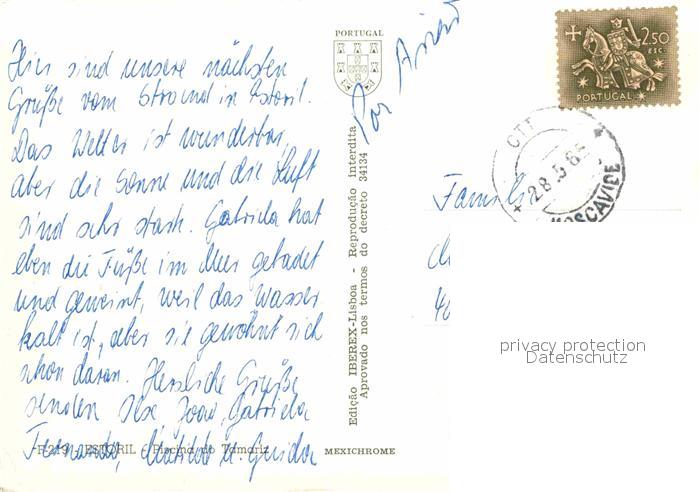 Hier sind unsere nächsten
Grüße vom Strand in Estoril.
Das Wetter ist wunderbar,
aber die Sonne und die Luft
sind sehr stark. Gabriela hat
eben die Füße im Meer gebadet
und geweint, weil das Wasser
kalt ist, aber sie gewöhnt sich
schon daran. Herzliche Grüße
senden Ilse Joao, Gabriela
Fernando, Matilde u. Guida
P-219 - ESTORIL - Piscina do Tamariz
PORTUGAL
Por Avião
Edição IBEREX-Lisboa - Reprodução Interdita
Aprovado nos termos do decreto 34134
MEXICHROME
2$50
ESC.
PORTUGAL
CTT
28.5.65
MOSCAVIDE
Familie
privacy protection
Datenschutz